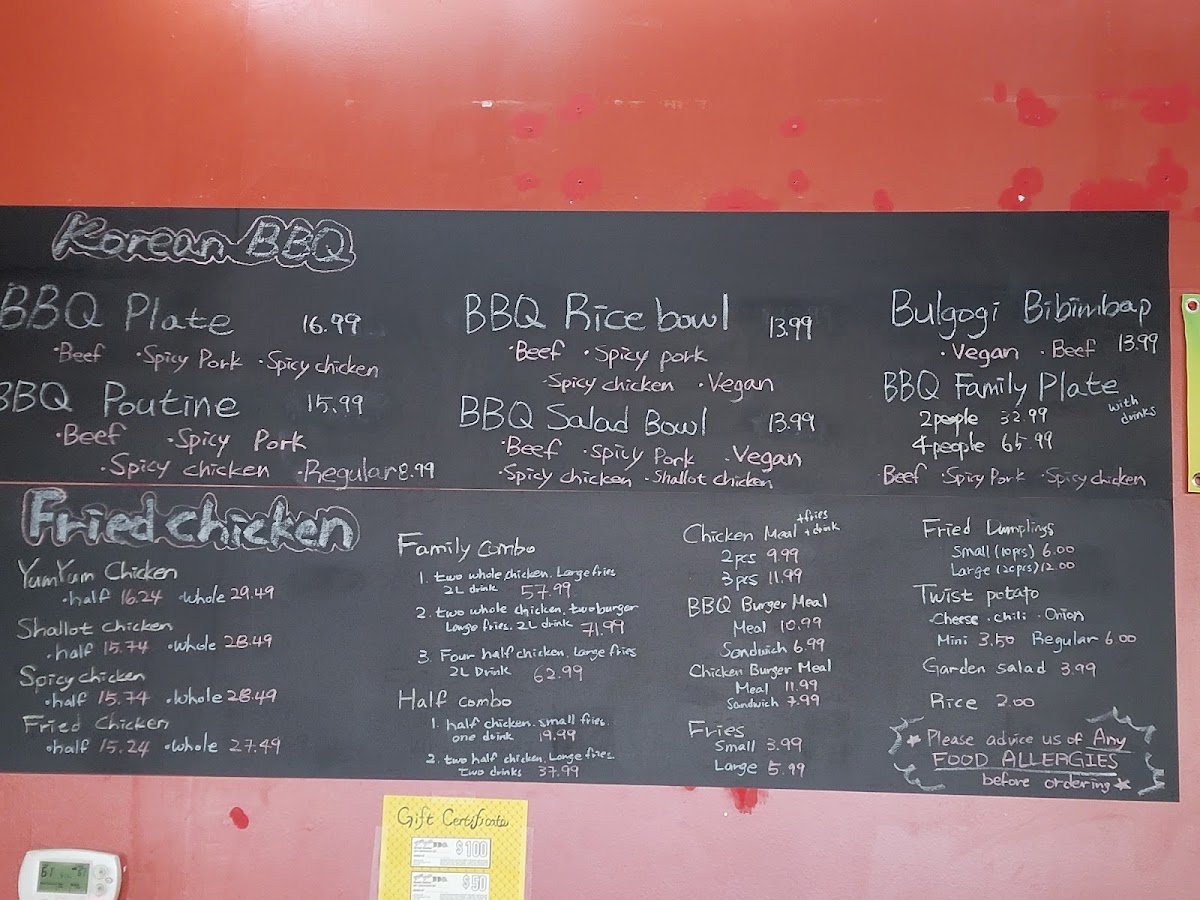 Korean BBQ
BBQ Plate 16.99
·Beef ·Spicy Pork ·Spicy chicken
BBQ Poutine 15.99
·Beef ·Spicy Pork
·Spicy chicken ·Regular 8.99
BBQ Rice bowl 13.99
·Beef ·Spicy pork
·Spicy chicken ·Vegan
BBQ Salad Bowl 13.99
·Beef ·Spicy Pork ·Vegan
·Spicy chicken ·Shallot chicken
Bulgogi Bibimbap
·Vegan ·Beef 13.99
BBQ Family Plate
with
drinks
2people 32.99
4people 65.99
·Beef ·Spicy Pork ·Spicy chicken
Fried chicken
YumYum Chicken
·half 16.24 ·whole 29.49
Shallot chicken
·half 15.74 ·whole 28.49
Spicy chicken
·half 15.74 ·whole 28.49
Fried Chicken
·half 15.24 ·whole 27.49
Family combo
1. two whole chicken. Large fries
2L drink 57.99
2. two whole chicken, two burger
Large fries. 2L drink 71.99
3. Four half chicken, large fries
2L Drink 62.99
Half combo
1. half chicken. small fries.
one drink 19.99
2. two half chicken, Large fries.
two drinks 37.99
Chicken Meal +fries
+drink
2pcs 9.99
3pcs 11.99
BBQ Burger Meal
Meal 10.99
Sandwich 6.99
Chicken Burger Meal
Meal 11.99
Sandwich 7.99
Fries
Small 3.99
Large 5.99
Fried Dumplings
Small (10pcs) 6.00
Large (20pcs) 12.00
Twist potato
·Cheese ·chili ·Onion
Mini 3.50 Regular 6.00
Garden salad 3.99
Rice 2.00
★ Please advice us of Any
FOOD ALLERGIES
before ordering ★
Gift Certificate
BBQ
$100
BBQ
$50
61